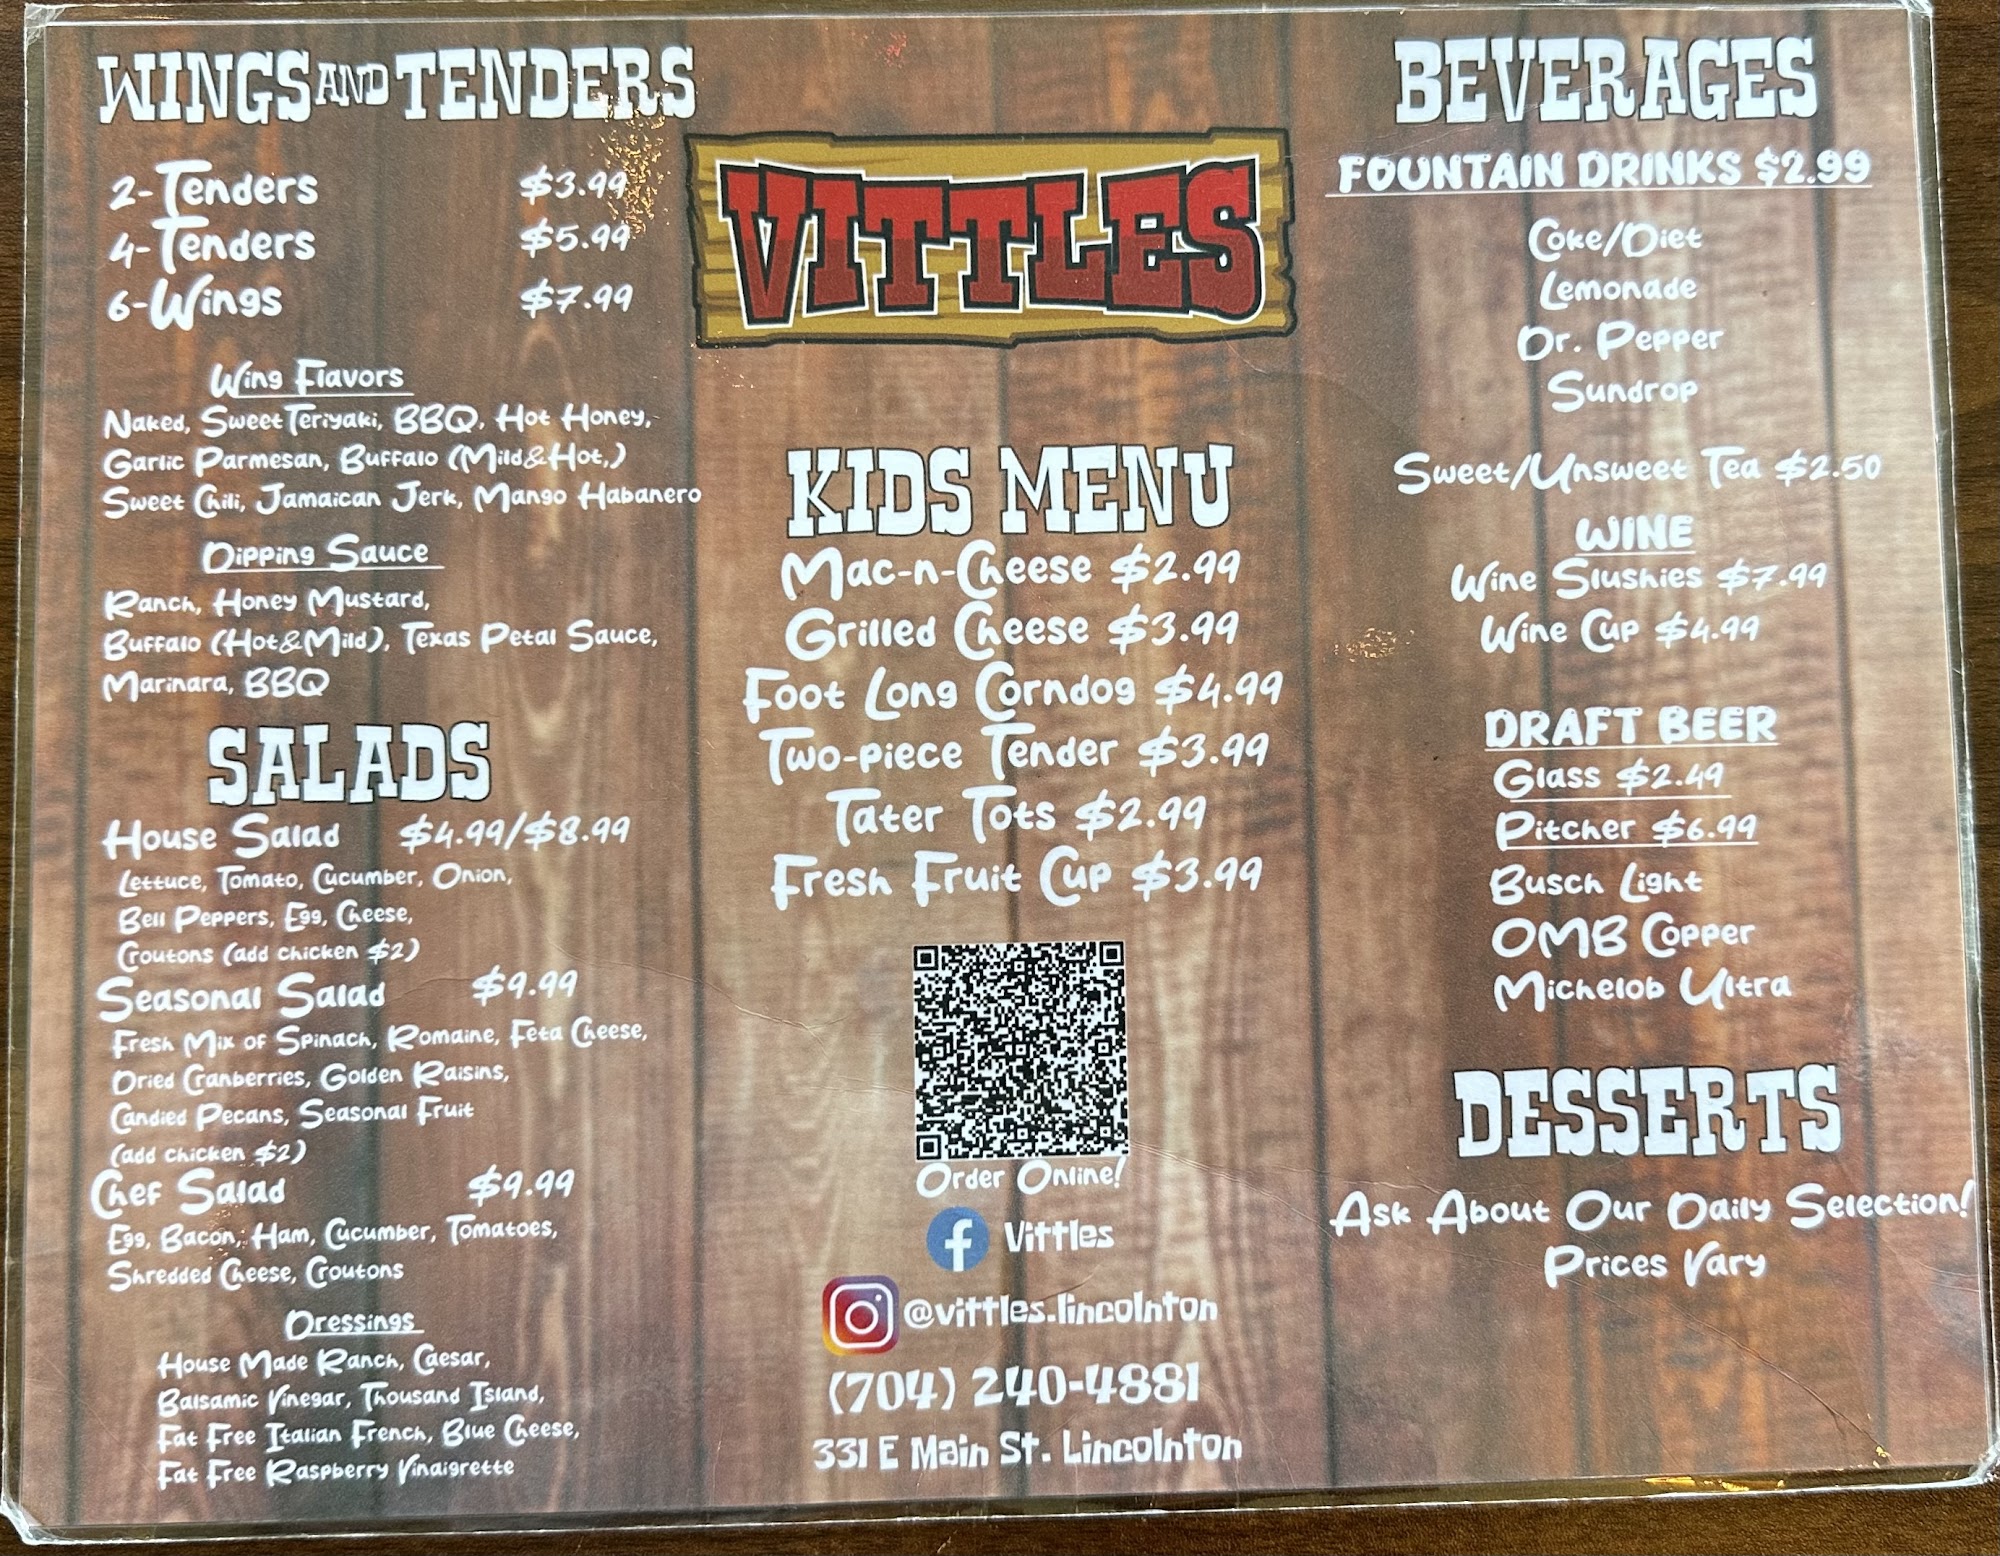 WINGS AND TENDERS
2-Tenders $3.99
4-Tenders $5.99
6-Wings $7.99
Wing Flavors
Naked, Sweet Teriyaki, BBQ, Hot Honey,
Garlic Parmesan, Buffalo (Mild&Hot,)
Sweet Chili, Jamaican Jerk, Mango Habanero
Dipping Sauce
Ranch, Honey Mustard,
Buffalo (Hot&Mild), Texas Petal Sauce,
Marinara, BBQ
SALADS
House Salad $4.99/$8.99
Lettuce, Tomato, Cucumber, Onion,
Bell Peppers, Egg, Cheese,
Croutons (add chicken $2)
Seasonal Salad $9.99
Fresh Mix of Spinach, Romaine, Feta Cheese,
Dried Cranberries, Golden Raisins,
Candied Pecans, Seasonal Fruit
(add chicken $2)
Chef Salad $9.99
Egg, Bacon, Ham, Cucumber, Tomatoes,
Shredded Cheese, Croutons
Dressings
House Made Ranch, Caesar,
Balsamic Vinegar, Thousand Island,
Fat Free Italian French, Blue Cheese,
Fat Free Raspberry Vinaigrette
VITTLES
KIDS MENU
Mac-n-Cheese $2.99
Grilled Cheese $3.99
Foot Long Corndog $4.99
Two-piece Tender $3.99
Tater Tots $2.99
Fresh Fruit Cup $3.99
Order Online!
Vittles
@vittles.lincolnton
(704) 240-4881
331 E Main St. Lincolnton
BEVERAGES
FOUNTAIN DRINKS $2.99
Coke/Diet
Lemonade
Dr. Pepper
Sundrop
Sweet/Unsweet Tea $2.50
WINE
Wine Slushies $7.99
Wine Cup $4.99
DRAFT BEER
Glass $2.49
Pitcher $6.99
Busch Light
OMB Copper
Michelob Ultra
DESSERTS
Ask About Our Daily Selection!
Prices Vary